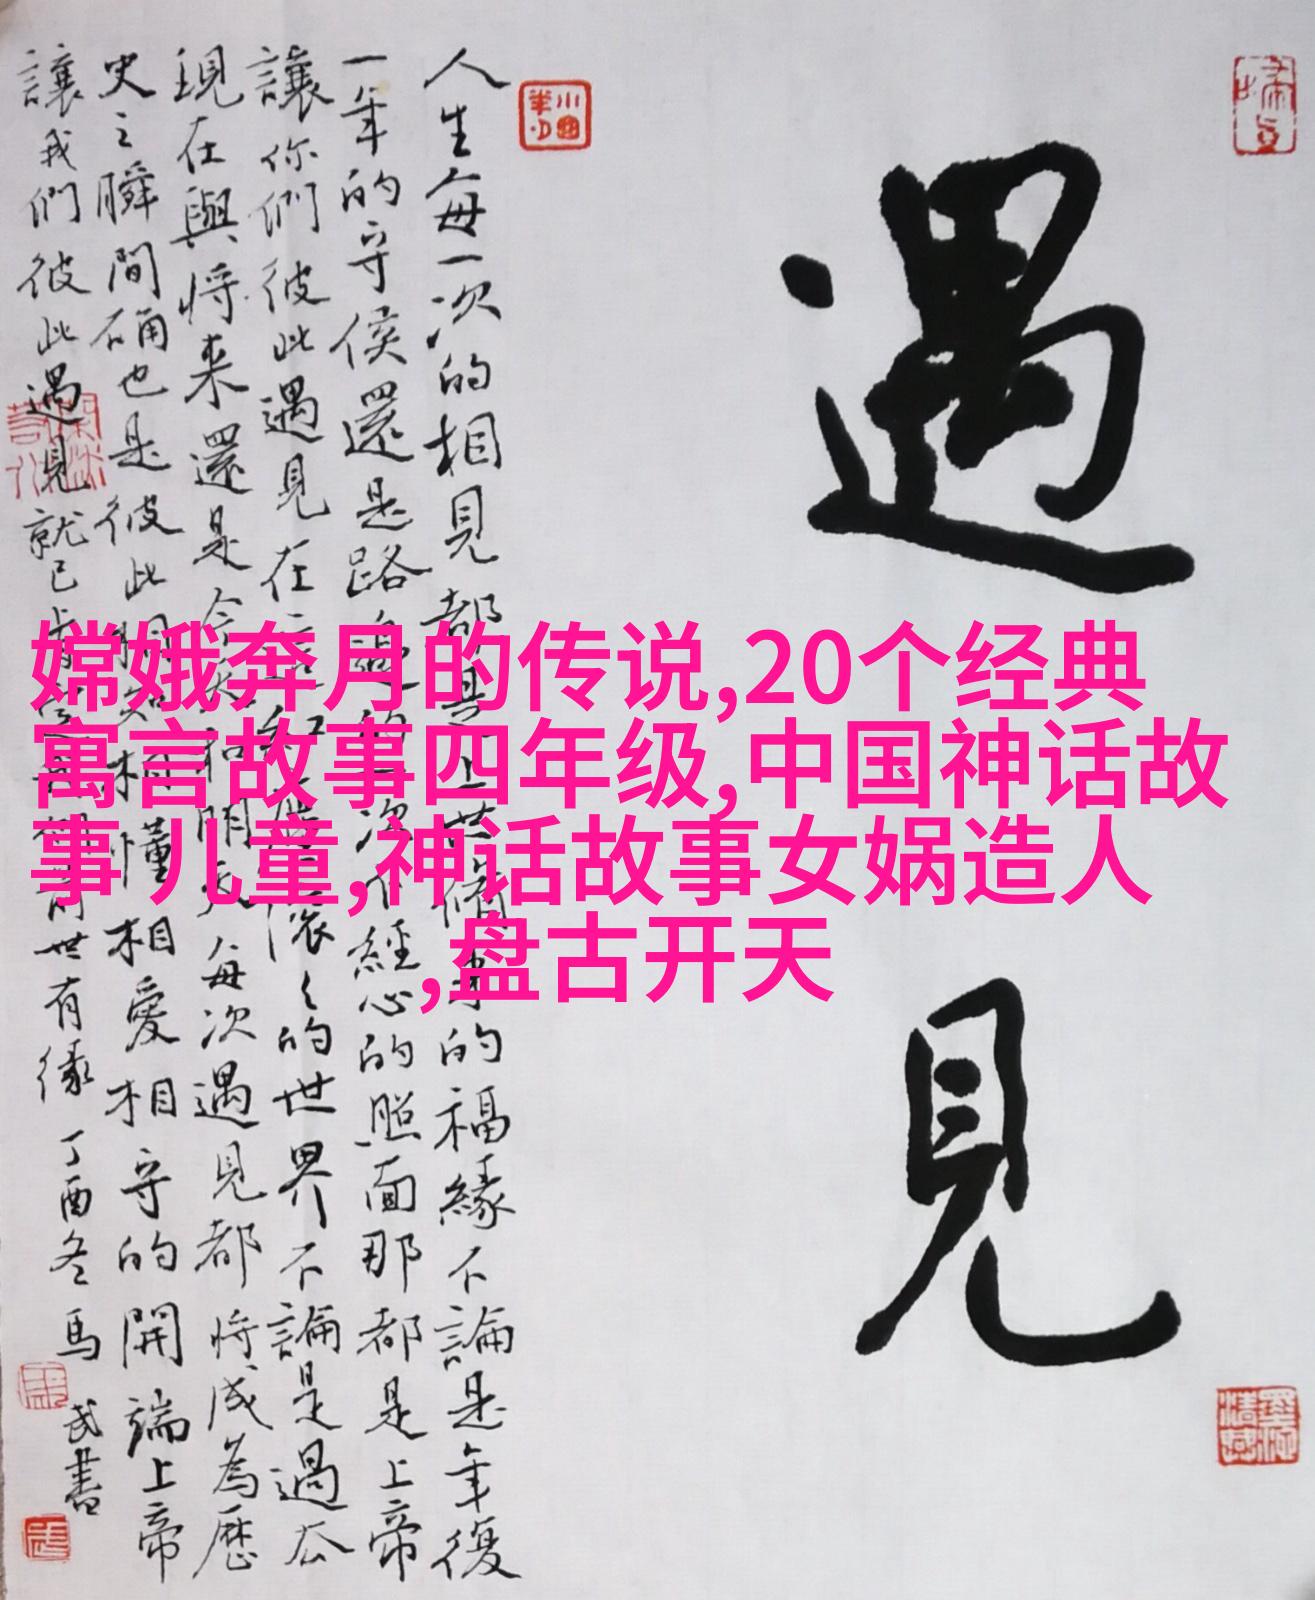 遇見
人生每一次的相見都是上世脩來的福緣不論是年復
一年的守侯還是路邊的一次不經心的照面那都是上帝
讓你們彼此遇見在這紅塵滾〻的世界不論是過去
現在與將来還是今天和明天每次遇見都將成為歷
史之瞬間碻也是彼此相知相懂相愛相守的開端上帝
讓我們彼此遇見就已
前世有缘
丁酉冬馬
武書
嫦娥奔月的传说,20个经典
寓言故事四年级,中国神话故
事 儿童,神话故事女娲造人
,盘古开天